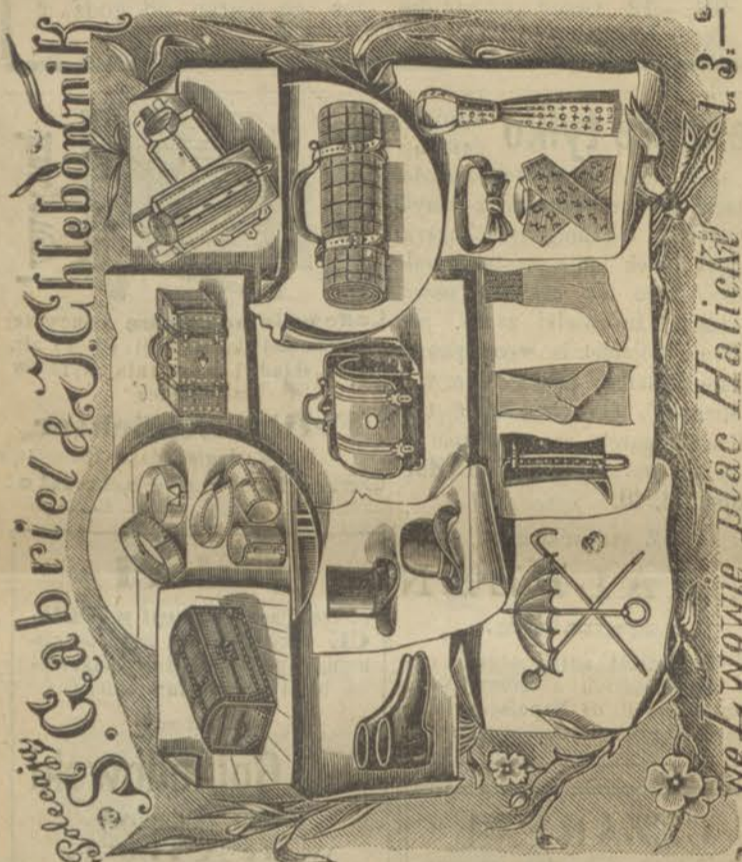 Polecają
S. Gabriel & J. Chlebownik
we Lwowie plac Halicki l. 3.